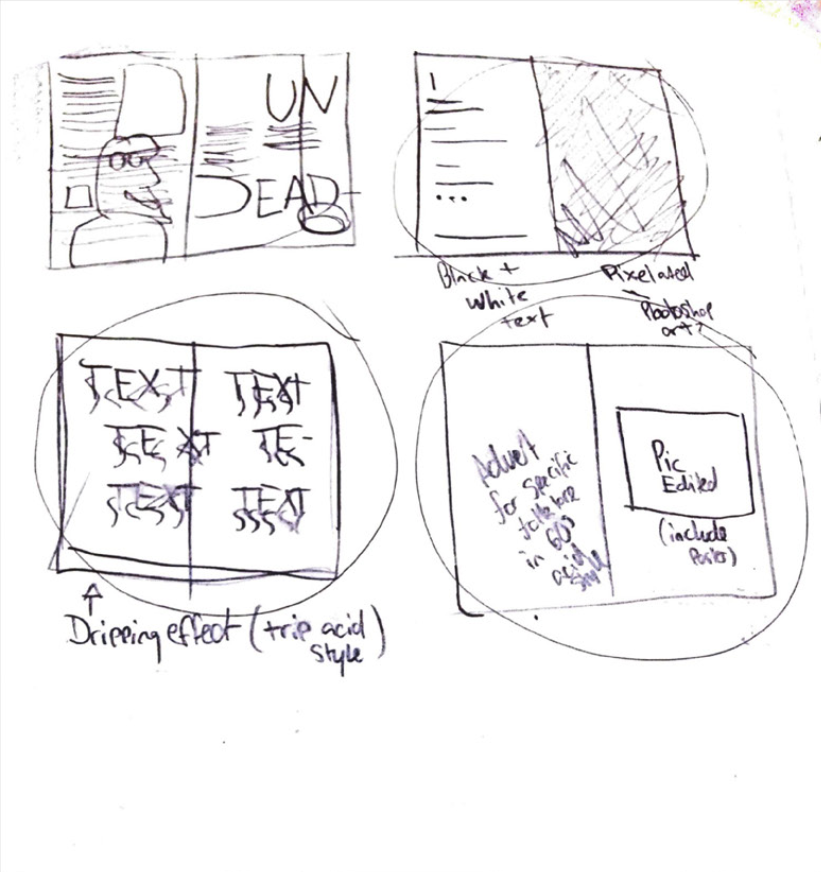 UN
DEAD
1
Black +
White
text
Pixelated
Photoshop
art?
TEXT TEXT
TEXT TE-
TEXT TEXT
Dripping effect (trip acid
style)
Advert
for specific
in 60s
acid
style
Pic
Edited
(include
Poster)